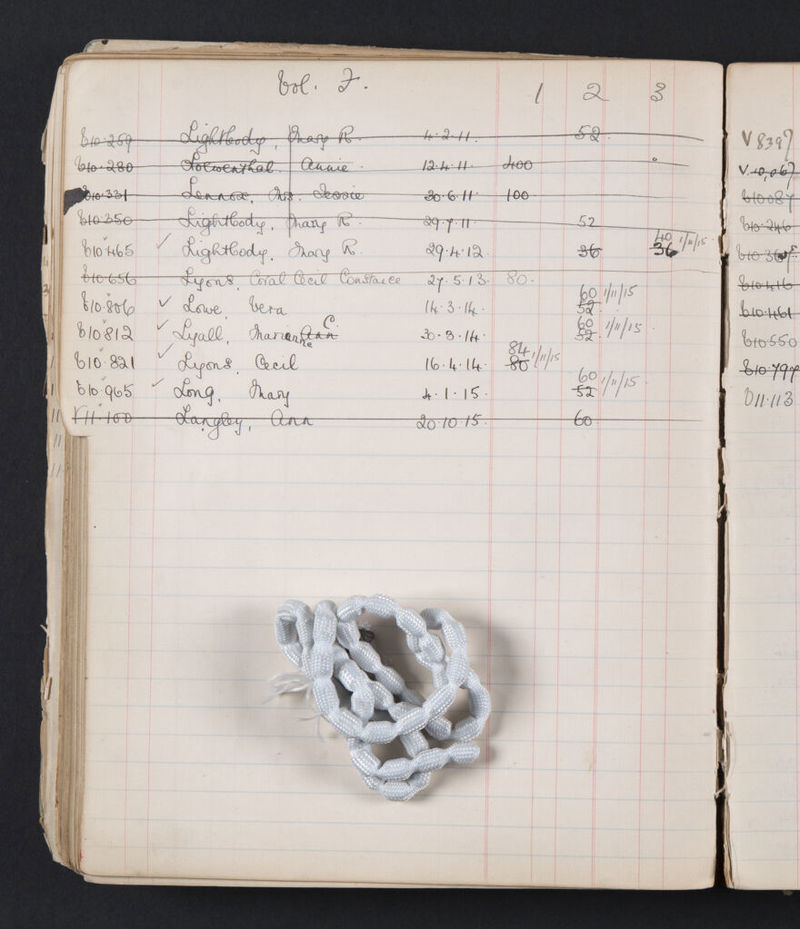 Vol. F. 1 2 3
b10·259 Lightbody, Mary R. 4·2·11. 52
b10·280 Loewenthal. Annie. 12·4·11. 400
b10·331 Lennox, Mrs. Jessie 30·6·11 100
b10·350 Lightbody, Mary R. 29·7·11 52
b10·465 ✓ Lightbody, Mary R. 29·4·12. 36 40 36 1/11/15
b10·656 Lyons, Coral Cecil Constance 27·5·13. 80.
b10·806 ✓ Lowe, Vera 14·3·14. 60 52 1/11/15
b10·812 ✓ Lyall, Marianne Ann C. 30·3·14. 60 52 1/11/15
b10·821 ✓ Lyons, Cecil 16·4·14. 84 80 1/11/15
b10·965 ✓ Long, Mary 4·1·15. 60 52 1/11/15
V11·100 Langley, Ann 20·10·15. 60
V 8397
V. 10,067
b10087
b10·246
b10·416
b10·461
b10·550
b10·797
b11·113